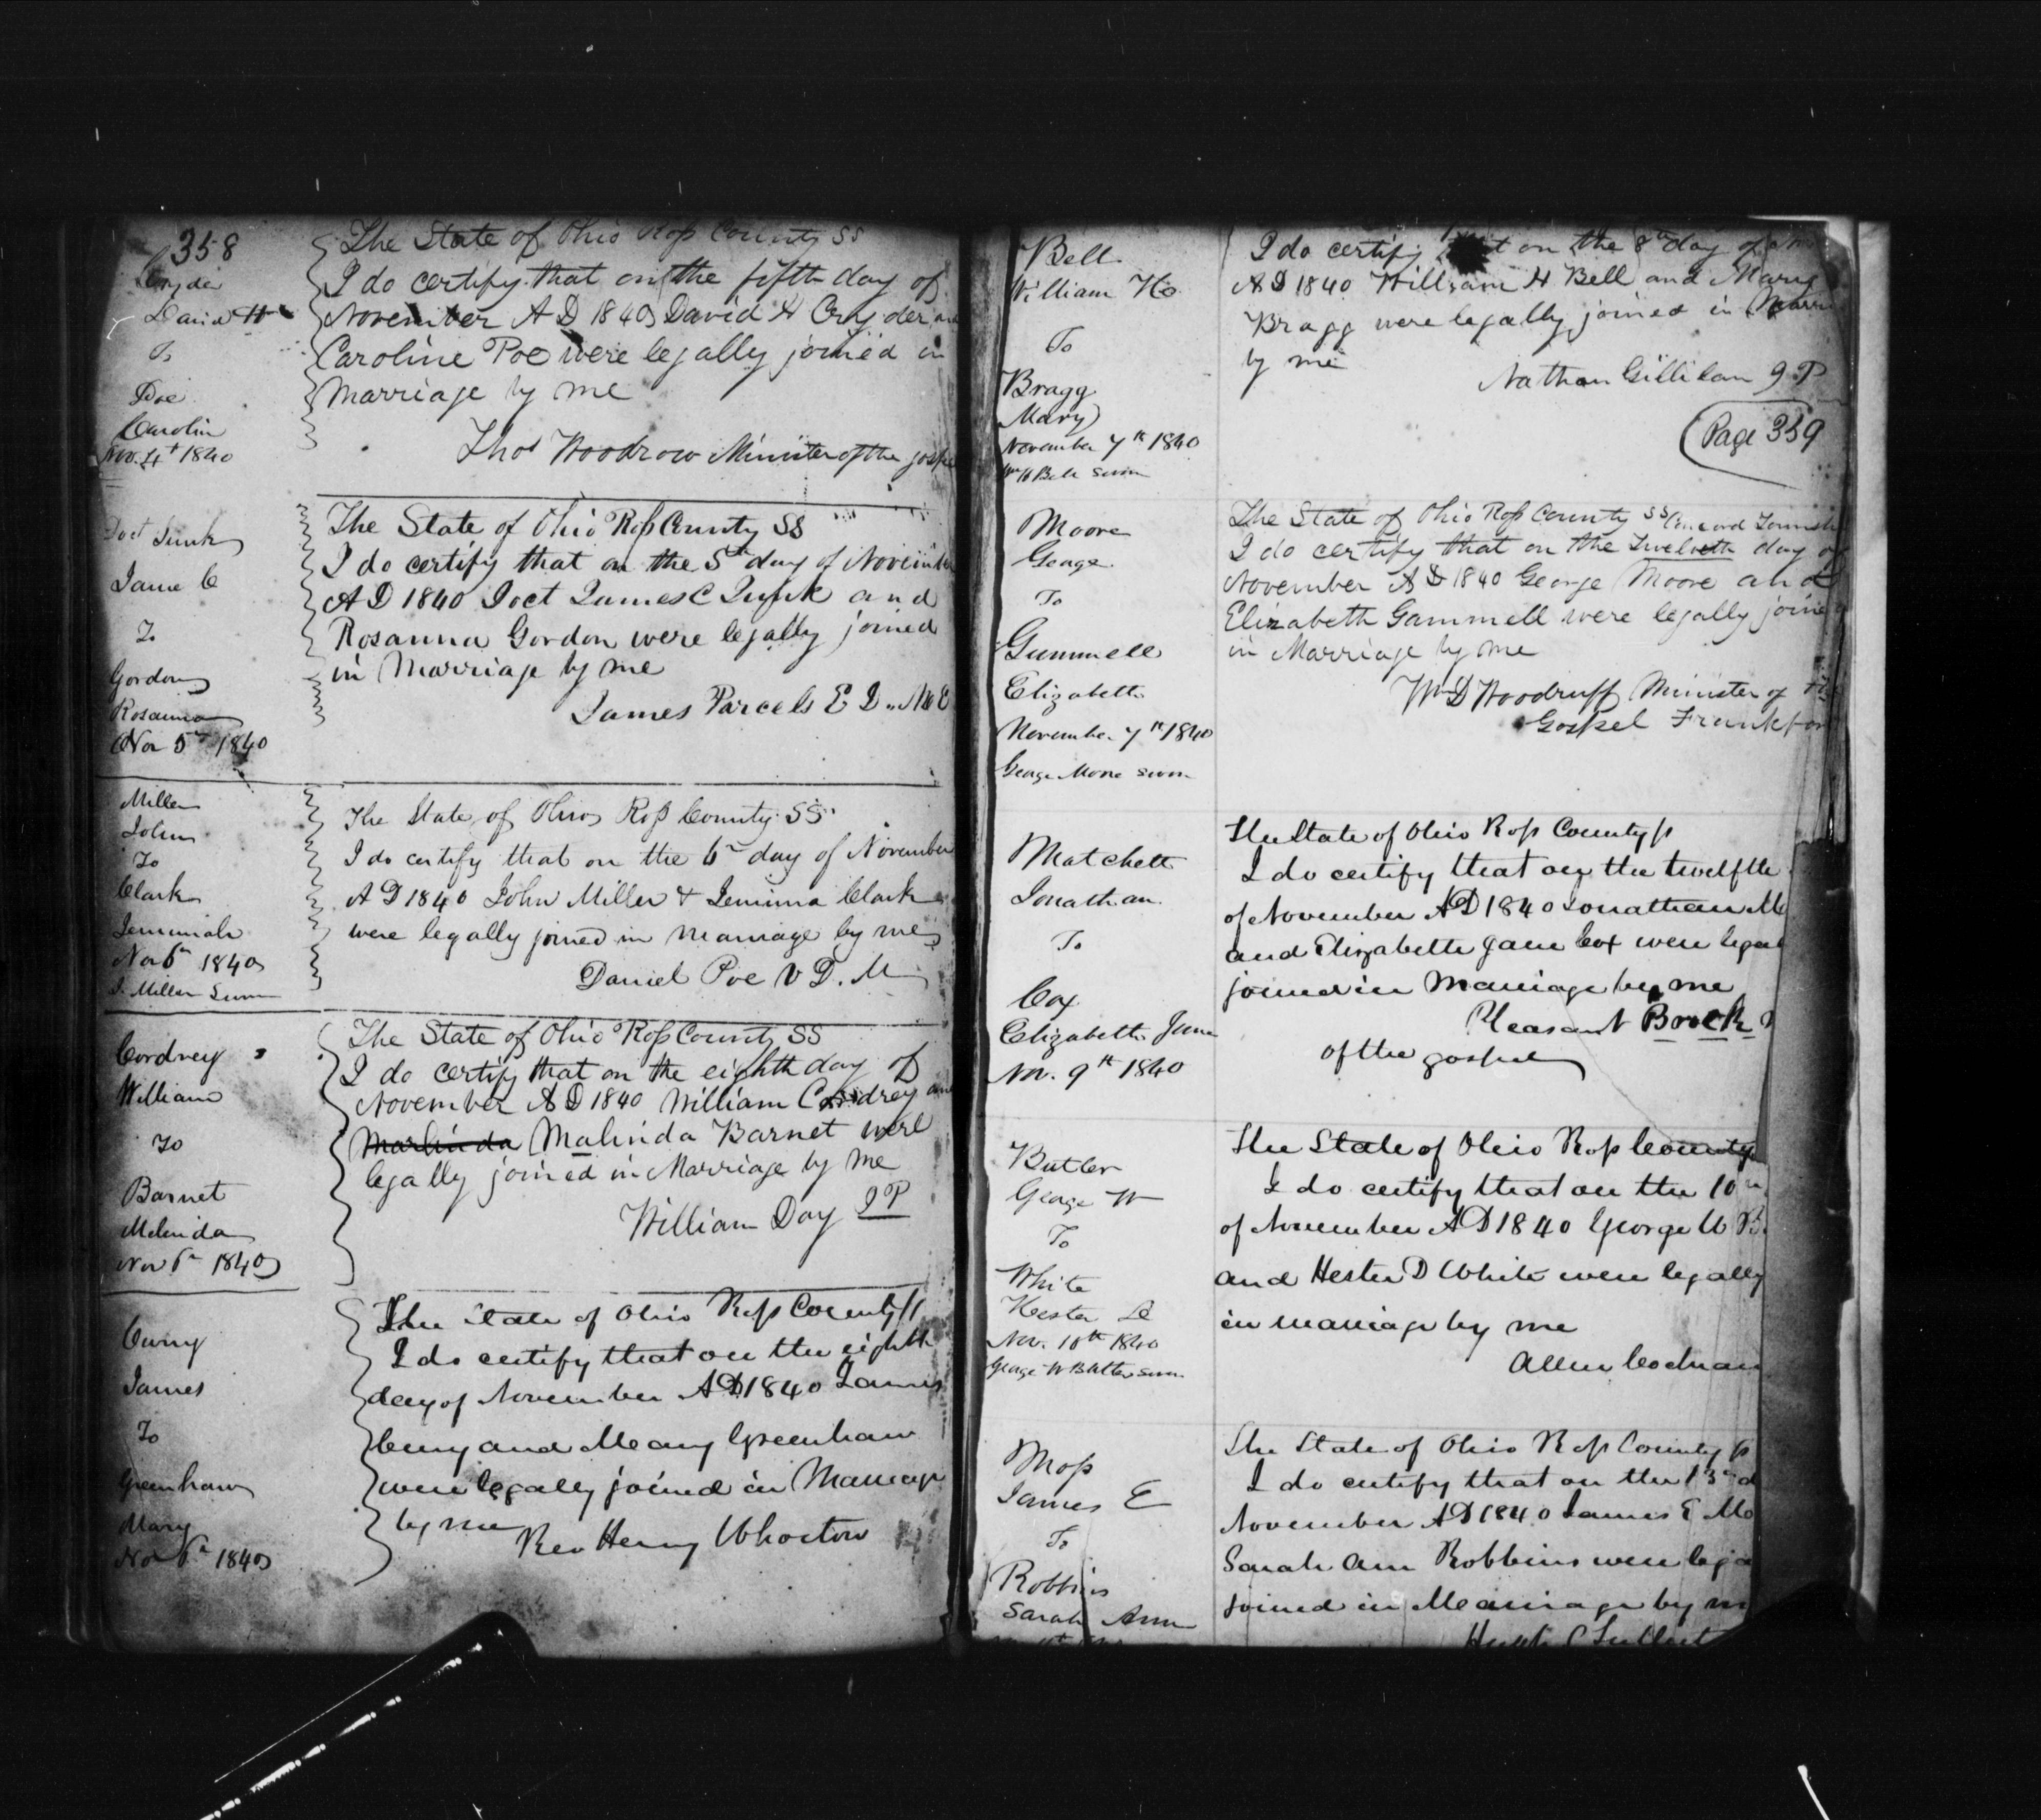 358
Cryder
David H
To
Poe
Carolin
Nov. 4t 1840
The State of Ohio Ross County SS
I do certify that on the fifth day of
November A D 1840 David H Cryder an
Caroline Poe were legally joined in
Marriage by me
Thos Woodrow Minister of the gospe
Doct Junk
Jame C
To
Gordon
Rosanna
Nov 5th 1840
The State of Ohio Ross County SS
I do certify that on the 5th day of November
A D 1840 Doct James C Junk and
Rosanna Gordon were legally joined
in Marriage by me
James Parcels E D. M E
Miller
John
To
Clark
Jemimah
Nov 6th 1840
J. Miller Sworn
The State of Ohio Ross County SS
I do certify that on the 6th day of November
A D 1840 John Miller & Jemima Clark
were legally joined in marriage by me
Daniel Poe V D. M
Cordrey
William
To
Barnet
Melinda
Nov 6th 1840
The State of Ohio Ross County SS
I do certify that on the eighth day of
November A D 1840 William Cordrey an
Marlinda Malinda Barnet were
legally joined in Marriage by me
William Day J P
Curry
James
To
Greenhaw
Mary
Nov 6th 1840
The State of Ohio Ross County ss
I do certify that on the eighth
day of November AD 1840 James
Curry and Mary Greenhaw
were legally joined in Marriage
by me
Rev Henry Whorton
Bell
William H
To
Bragg
Mary
November 7th 1840
Wm H Bell sworn
I do certify that on the 8th day of
A D 1840 William H Bell and Mary
Bragg were legally joined in Marri
by me
Nathan Gillilan J P
Page 359
Moore
George
To
Gummell
Elizabeth
November 7th 1840
George Moore sworn
The State of Ohio Ross County SS Concord Townsh
I do certify that on the Twelveth day of
November A D 1840 George Moore and
Elizabeth Gammell were legally joine
in Marriage by me
Wm D Woodruff Minister of the
Gospel Frankfor
Matchett
Jonathan
To
Cox
Elizabeth Jane
Nov. 9th 1840
The State of Ohio Ross County ss
I do certify that on the twelfth
of November AD 1840 Jonathan M
and Elizabeth Jane Cox were legal
joined in Marriage by me
Pleasant Brock
of the gospel
Butler
George W
To
White
Hester D
Nov. 10th 1840
George W Butler sworn
The State of Ohio Ross County
I do certify that on the 10th
of November AD 1840 George W B
and Hester D White were legally
in marriage by me
Allen Cochran
Moss
James E
To
Robbins
Sarah Ann
The State of Ohio Ross County ss
I do certify that on the 13th d
November AD 1840 James E Mo
Sarah Ann Robbins were lega
joined in Marriage by m